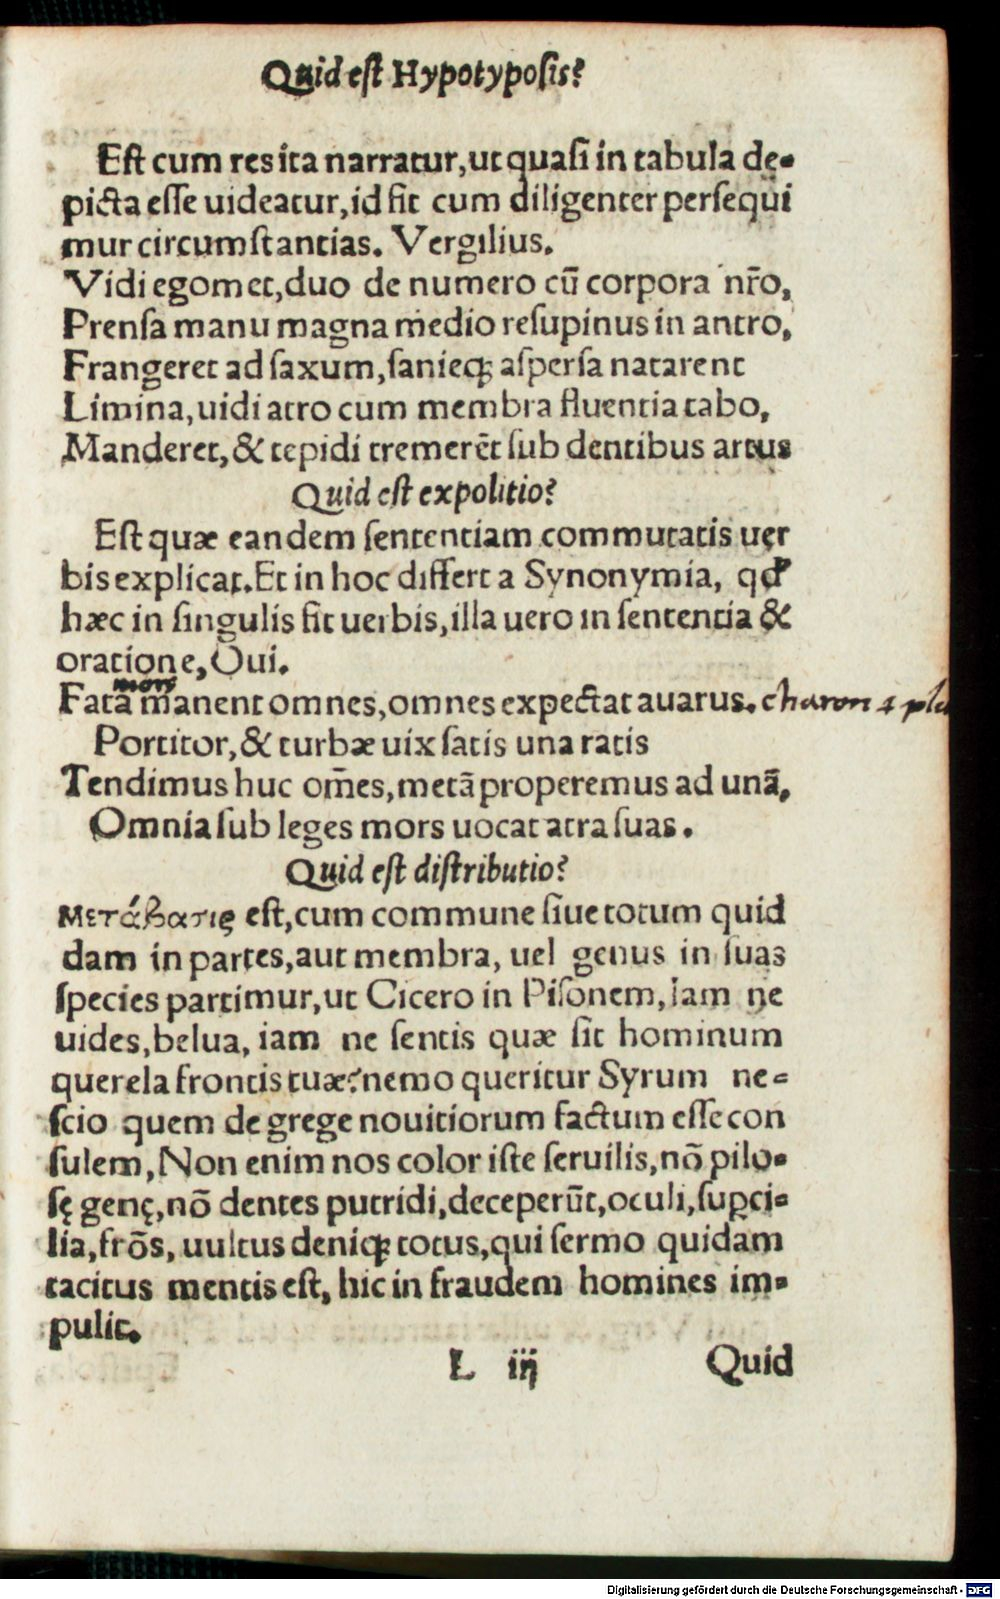 Quid est Hypotyposis?
Est cum res ita narratur, ut quasi in tabula de-
picta esse uideatur, id fit cum diligenter persequi
mur circumstantias. Vergilius.
Vidi egomet, duo de numero cū corpora nr̄o,
Prensa manu magna medio resupinus in antro,
Frangeret ad saxum, sanieq; aspersa natarent
Limina, uidi atro cum membra fluentia tabo,
Manderet, & tepidi tremerēt sub dentibus artus
Quid est expolitio?
Est quæ eandem sententiam commutatis uer
bis explicat. Et in hoc differt a Synonymia, qd
hæc in singulis fit uerbis, illa uero in sententia &
oratione, Oui.
mors
Fata manent omnes, omnes expectat auarus. charon
Portitor, & turbæ uix satis una ratis
Tendimus huc om̄es, metā properemus ad unā,
Omnia sub leges mors uocat atra suas.
Quid est distributio?
Μετάβασις est, cum commune siue totum quid
dam in partes, aut membra, uel genus in suas
species partimur, ut Cicero in Pisonem, Iam ne
uides, belua, iam ne sentis quæ sit hominum
querela frontis tuæ? nemo queritur Syrum ne-
scio quem de grege nouitiorum factum esse con
sulem, Non enim nos color iste seruilis, nō pilo-
sę genę, nō dentes putridi, deceperūt, oculi, supci-
lia, frōs, uultus deniq; totus, qui sermo quidam
tacitus mentis est, hic in fraudem homines im-
pulit.
L iij Quid
Digitalisierung gefördert durch die Deutsche Forschungsgemeinschaft - DFG